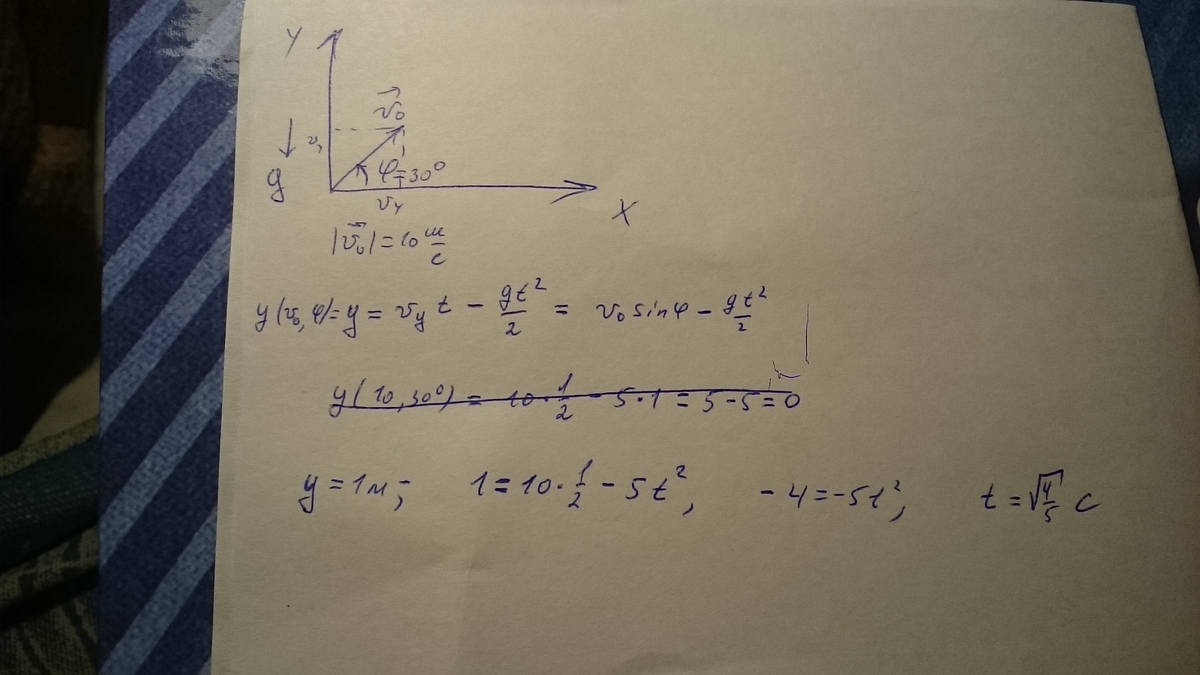 Y
v⃗₀
g
φ=30°
X
|v⃗₀|=10 м/с
y(v₀,φ)=y = v_y t - gt²/2 = v₀ sinφ - gt²/2
y(10,30°) = 10·1/2 - 5·1 = 5-5=0
y=1м; 1=10·1/2 - 5t², -4=-5t², t=√4/5 с